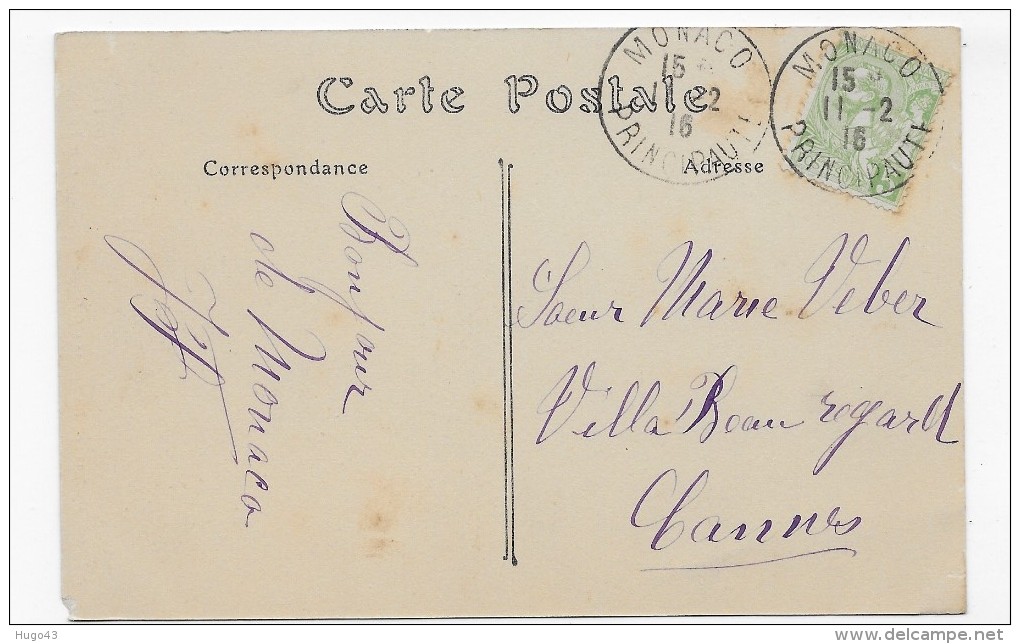 Carte Postale
Correspondance
Adresse
MONACO
15
11-2
16
PRINCIPAUTÉ
MONACO
15
11-2
16
PRINCIPAUTÉ
Bonjour
de Monaco
Soeur Marie Veber
Villa Beau regard
Cannes
Hugo43
www.delcampe.net